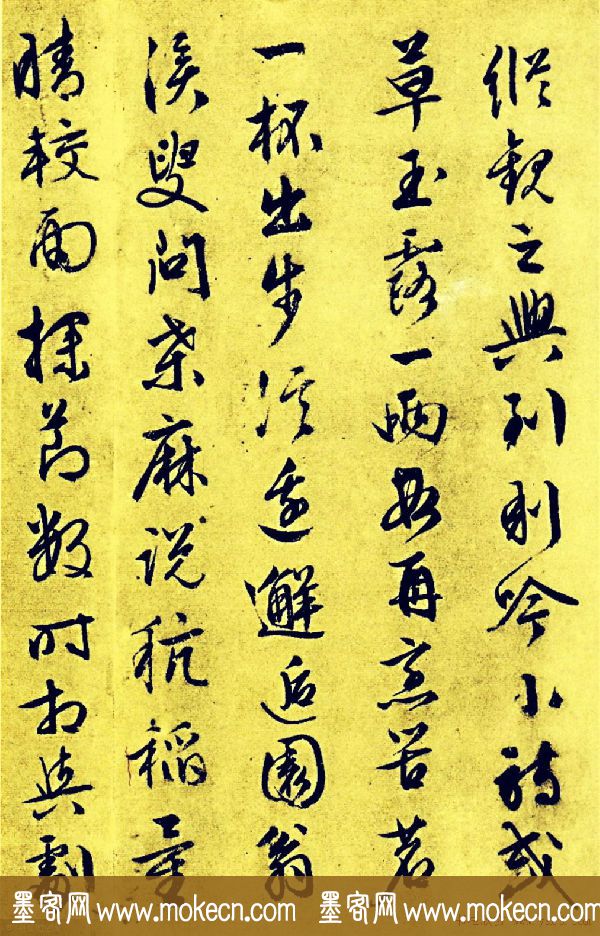 縱觀之興到則吟小詩或
草玉露一兩段再烹苦茗
一杯出步溪邊邂逅園翁
溪叟問桑麻說秔稻量
晴較雨探節數時相與劇
墨客网 www.mokecn.com 墨客网 www.mokecn.com